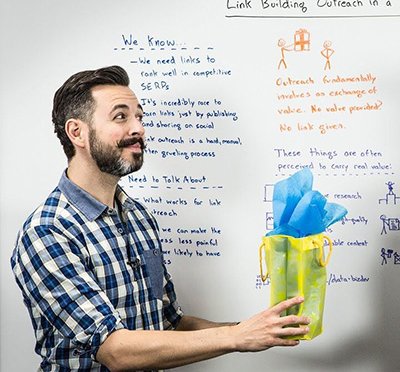 Link Building Outreach in a
We Know...
- We need links to
rank well in competitive
SERPs
It's incredibly rare to
earn links just by publishing
and sharing on social
Link outreach is a hard, manual,
often grueling process
Need to Talk About
What works for link
outreach
we can make the
less painful
likely to have
Outreach fundamentally
involves an exchange of
value. No value provided?
No link given.
These things are often
perceived to carry real value.
research
able content
/data-bizdev